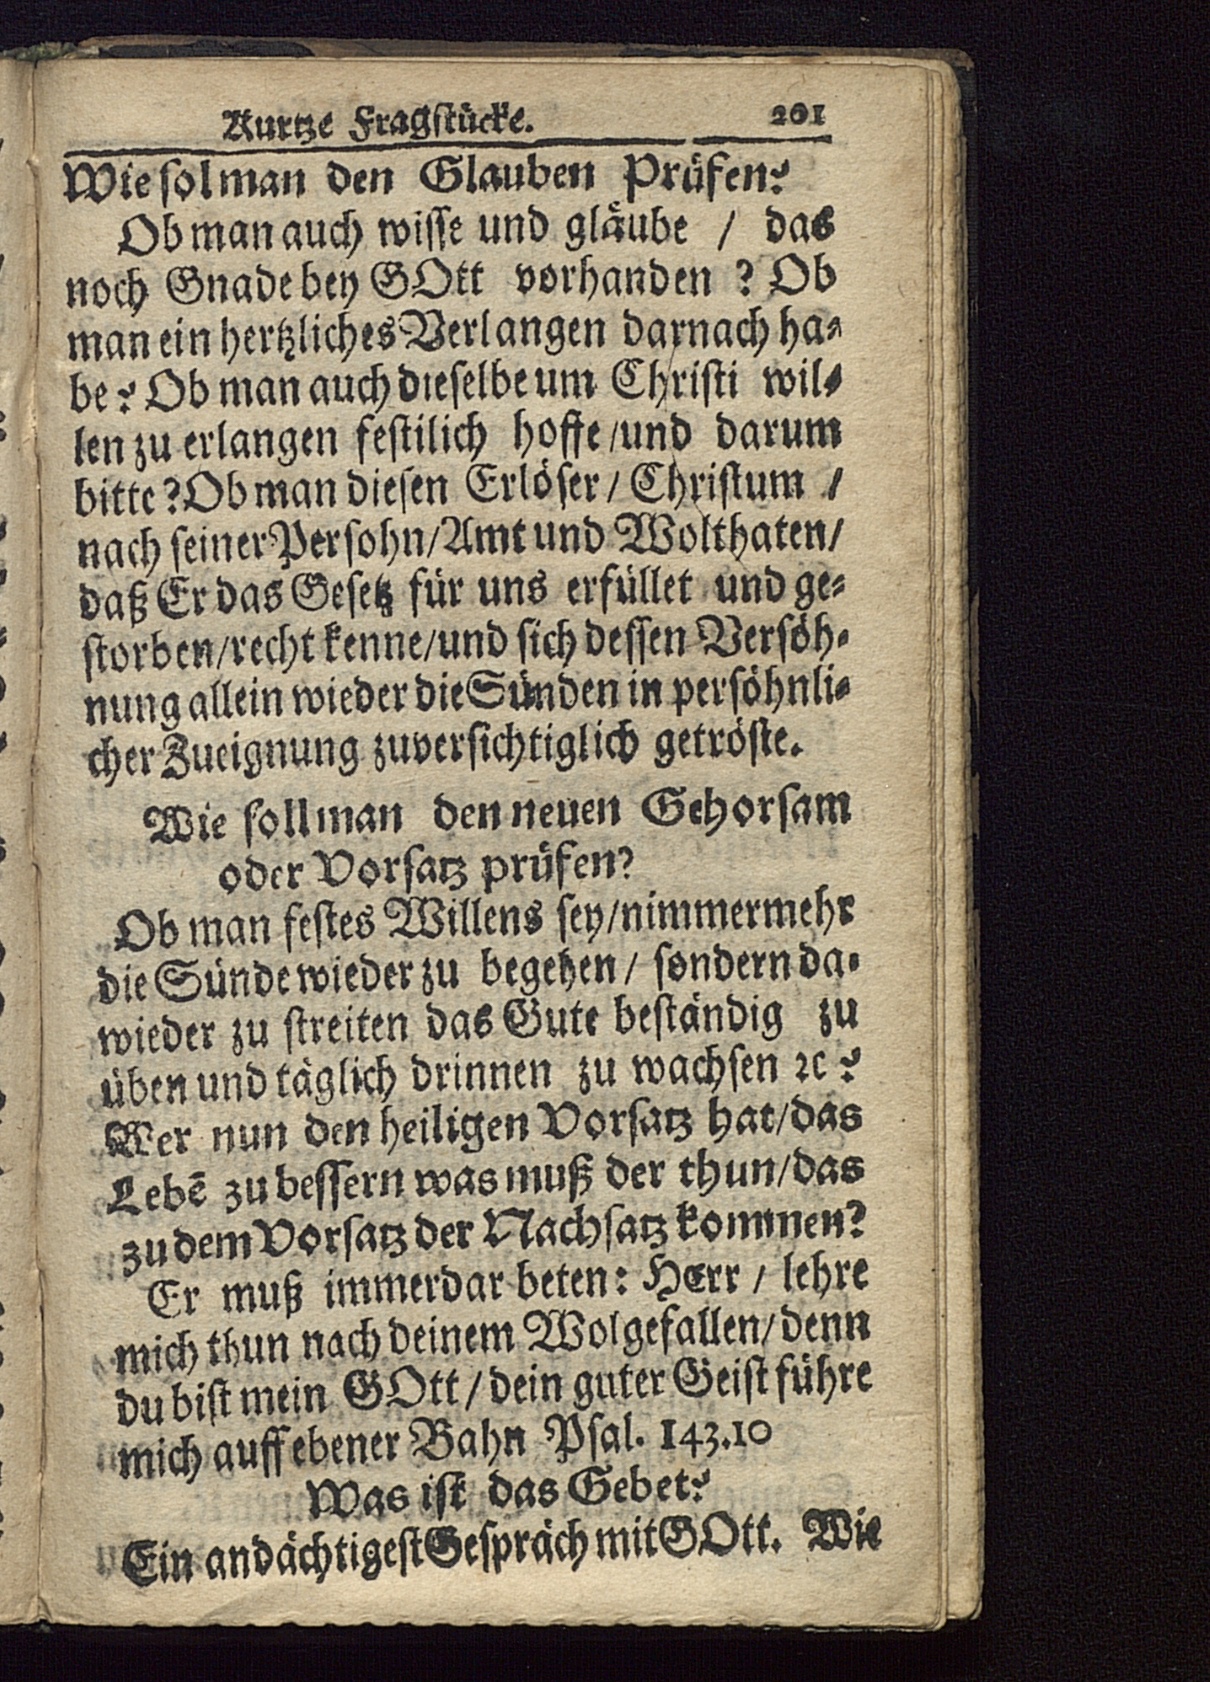 Kurtze Fragstücke. 201
Wie sol man den Glauben Prüfen?
Ob man auch wisse und gläube / das
noch Gnade bey GOtt vorhanden ? Ob
man ein hertzliches Verlangen darnach ha-
be? Ob man auch dieselbe um Christi wil-
len zu erlangen festilich hoffe / und darum
bitte? Ob man diesen Erlöser / Christum /
nach seiner Persohn / Amt und Wolthaten /
daß Er das Gesetz für uns erfüllet und ge-
storben / recht kenne / und sich dessen Versöh-
nung allein wieder die Sünden in persöhnli-
cher Zueignung zuversichtiglich getröste.
Wie soll man den neuen Gehorsam
oder Vorsatz prüfen?
Ob man festes Willens sey / nimmermehr
die Sünde wieder zu begehen / sondern da-
wieder zu streiten das Gute beständig zu
üben und täglich drinnen zu wachsen ꝛc?
Wer nun den heiligen Vorsatz hat / das
Lebē zu bessern was muß der thun / das
zu dem Vorsatz der Nachsatz kommen?
Er muß immerdar beten: HErr / lehre
mich thun nach deinem Wolgefallen / denn
du bist mein GOtt / dein guter Geist führe
mich auff ebener Bahn Psal. 143.10
Was ist das Gebet?
Ein andächtigest Gespräch mit GOtt. Wie